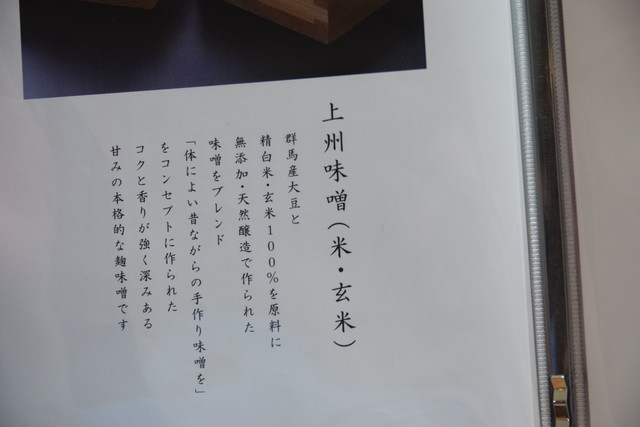 上州味噌(米・玄米)
群馬産大豆と
精白米・玄米100%を原料に
無添加・天然醸造で作られた
味噌をブレンド
「体によい昔ながらの手作り味噌を」
をコンセプトに作られた
コクと香りが強く深みある
甘みの本格的な麹味噌です